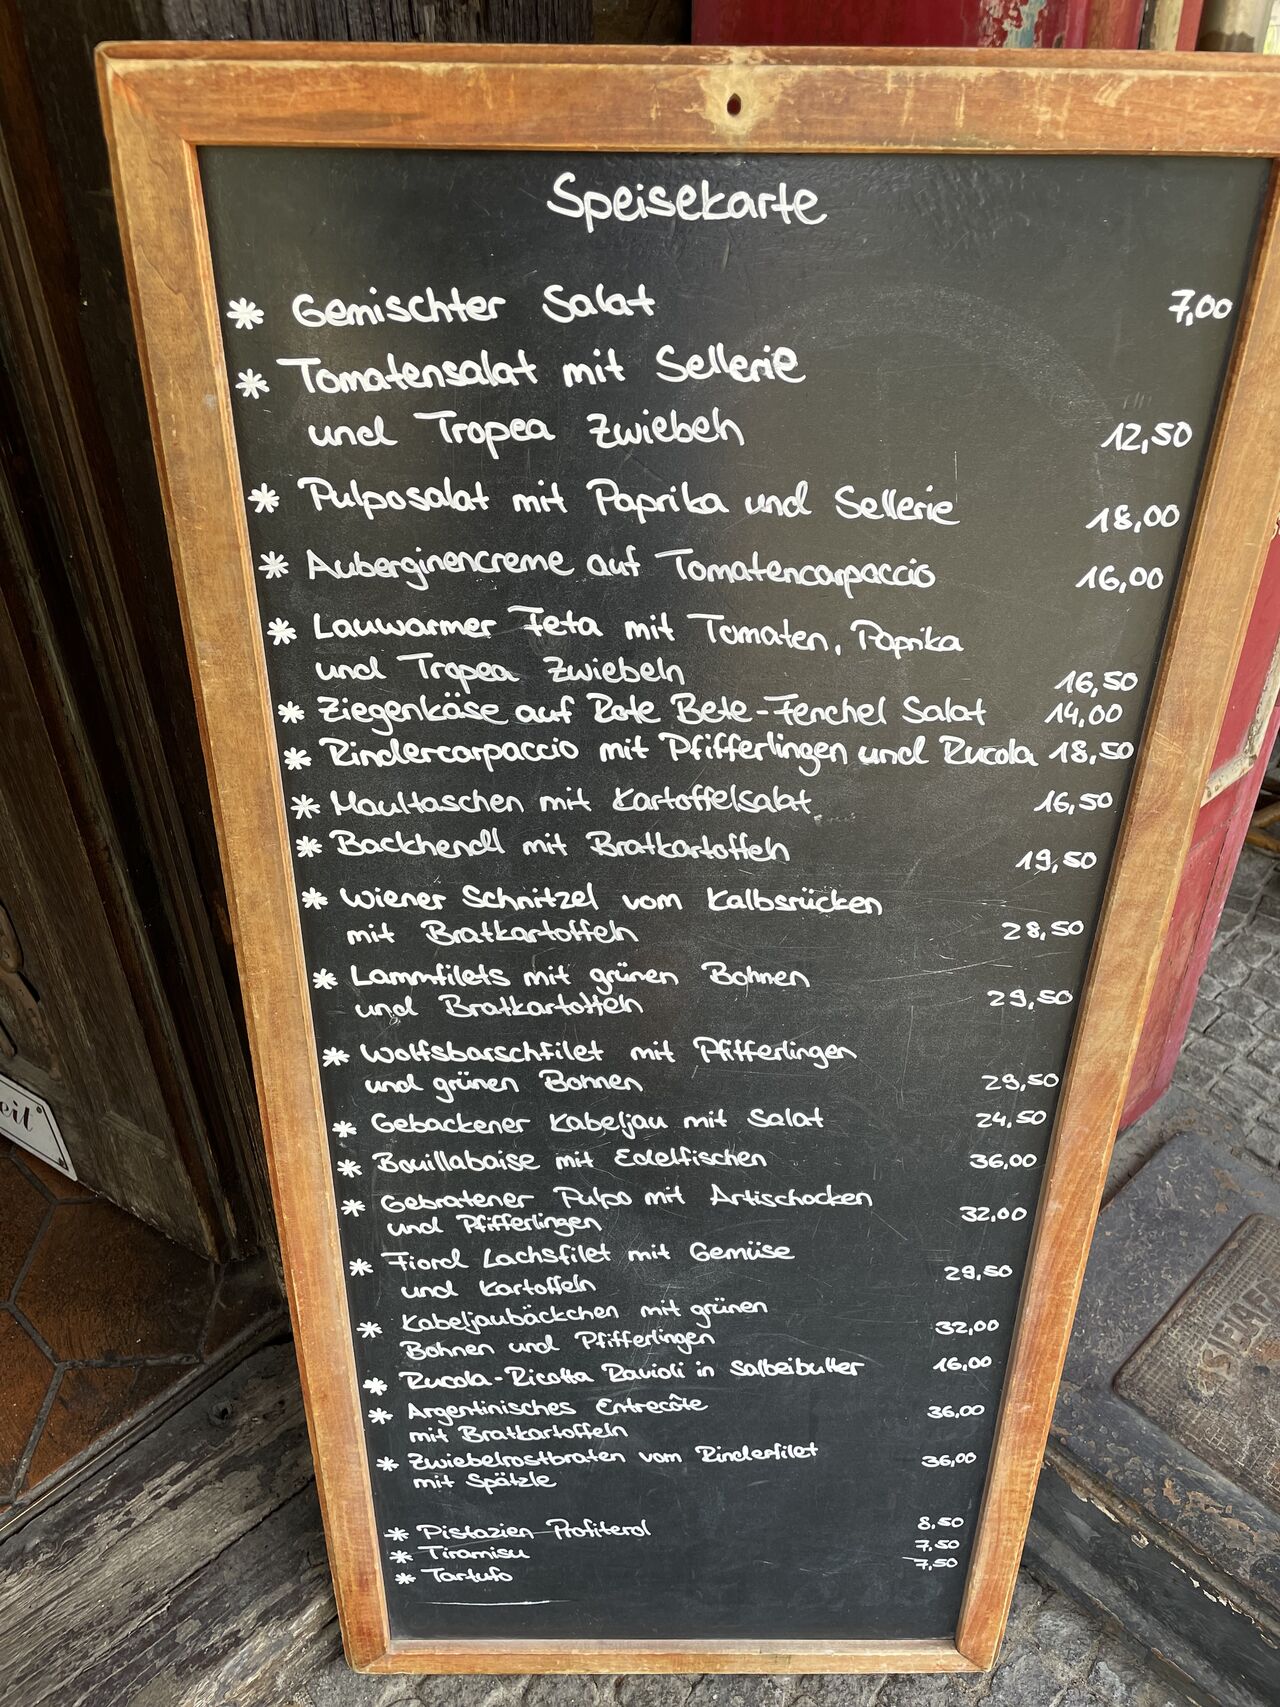 Speisekarte
* Gemischter Salat 7,00
* Tomatensalat mit Sellerie
und Tropea Zwiebeln 12,50
* Pulposalat mit Paprika und Sellerie 18,00
* Auberginencreme auf Tomatencarpaccio 16,00
* Lauwarmer Feta mit Tomaten, Paprika
und Tropea Zwiebeln 16,50
* Ziegenkäse auf Rote Bete-Fenchel Salat 14,00
* Rindercarpaccio mit Pfifferlingen und Rucola 18,50
* Maultaschen mit Kartoffelsalat 16,50
* Backhendl mit Bratkartoffeln 19,50
* Wiener Schnitzel vom Kalbsrücken
mit Bratkartoffeln 28,50
* Lammfilets mit grünen Bohnen
und Bratkartoffeln 29,50
* Wolfsbarschfilet mit Pfifferlingen
und grünen Bohnen 29,50
* Gebackener Kabeljau mit Salat 24,50
* Bouillabaise mit Edelfischen 36,00
* Gebratener Pulpo mit Artischocken
und Pfifferlingen 32,00
* Fiord Lachsfilet mit Gemüse
und Kartoffeln 29,50
* Kabeljaubäckchen mit grünen
Bohnen und Pfifferlingen 32,00
* Rucola-Ricotta Ravioli in Salbeibutter 16,00
* Argentinisches Entrecôte
mit Bratkartoffeln 36,00
* Zwiebelrostbraten vom Rinderfilet
mit Spätzle 36,00
* Pistazien Profiterol 8,50
* Tiramisu 7,50
* Tartufo 7,50
eit